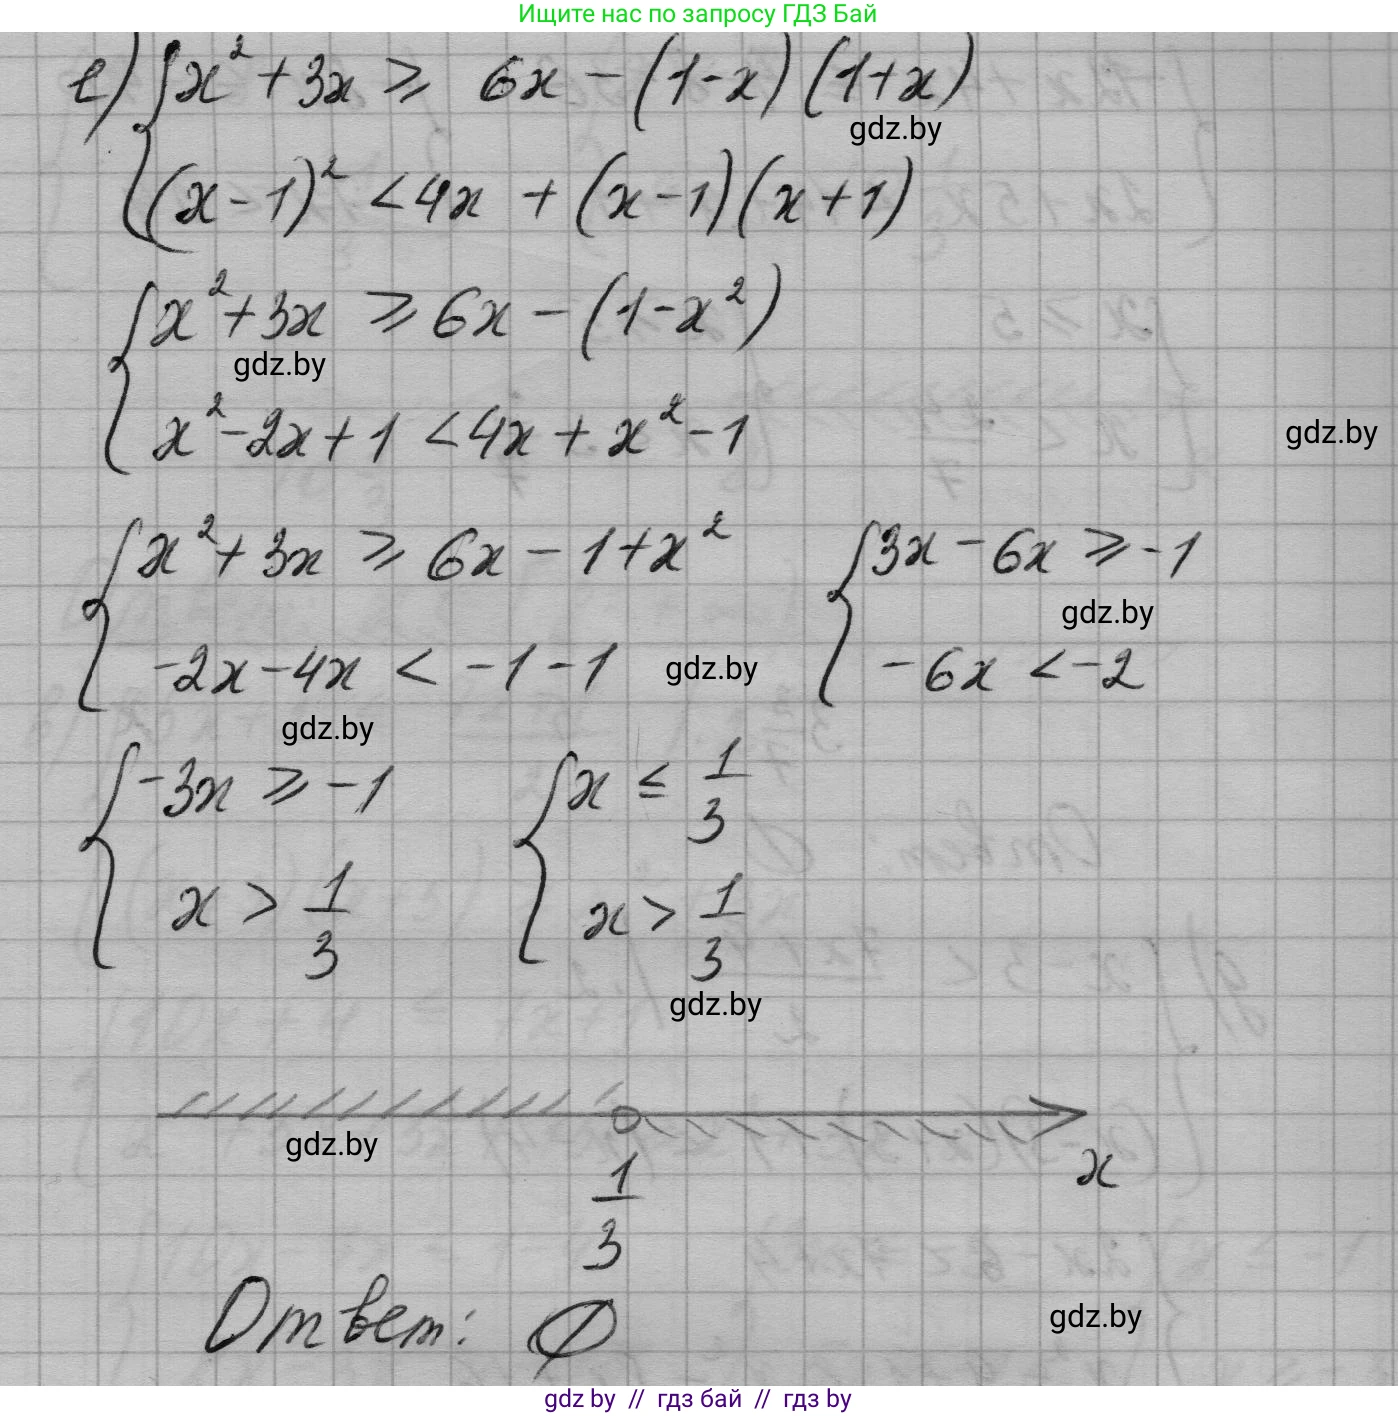 Ищите нас по запросу ГДЗ Бай
е) { x² + 3x ⩾ 6x - (1-x)(1+x)
gdz.by
(x-1)² < 4x + (x-1)(x+1)
{ x² + 3x ⩾ 6x - (1-x²)
gdz.by
x² - 2x + 1 < 4x + x² - 1
gdz.by
{ x² + 3x ⩾ 6x - 1 + x² { 3x - 6x ⩾ -1
gdz.by
-2x - 4x < -1 - 1 gdz.by -6x < -2
gdz.by
{ -3x ⩾ -1 { x ≤ 1/3
x > 1/3 x > 1/3
gdz.by
gdz.by
x
1/3
Ответ: ∅
gdz.by
gdz by // гдз бай // гдз by